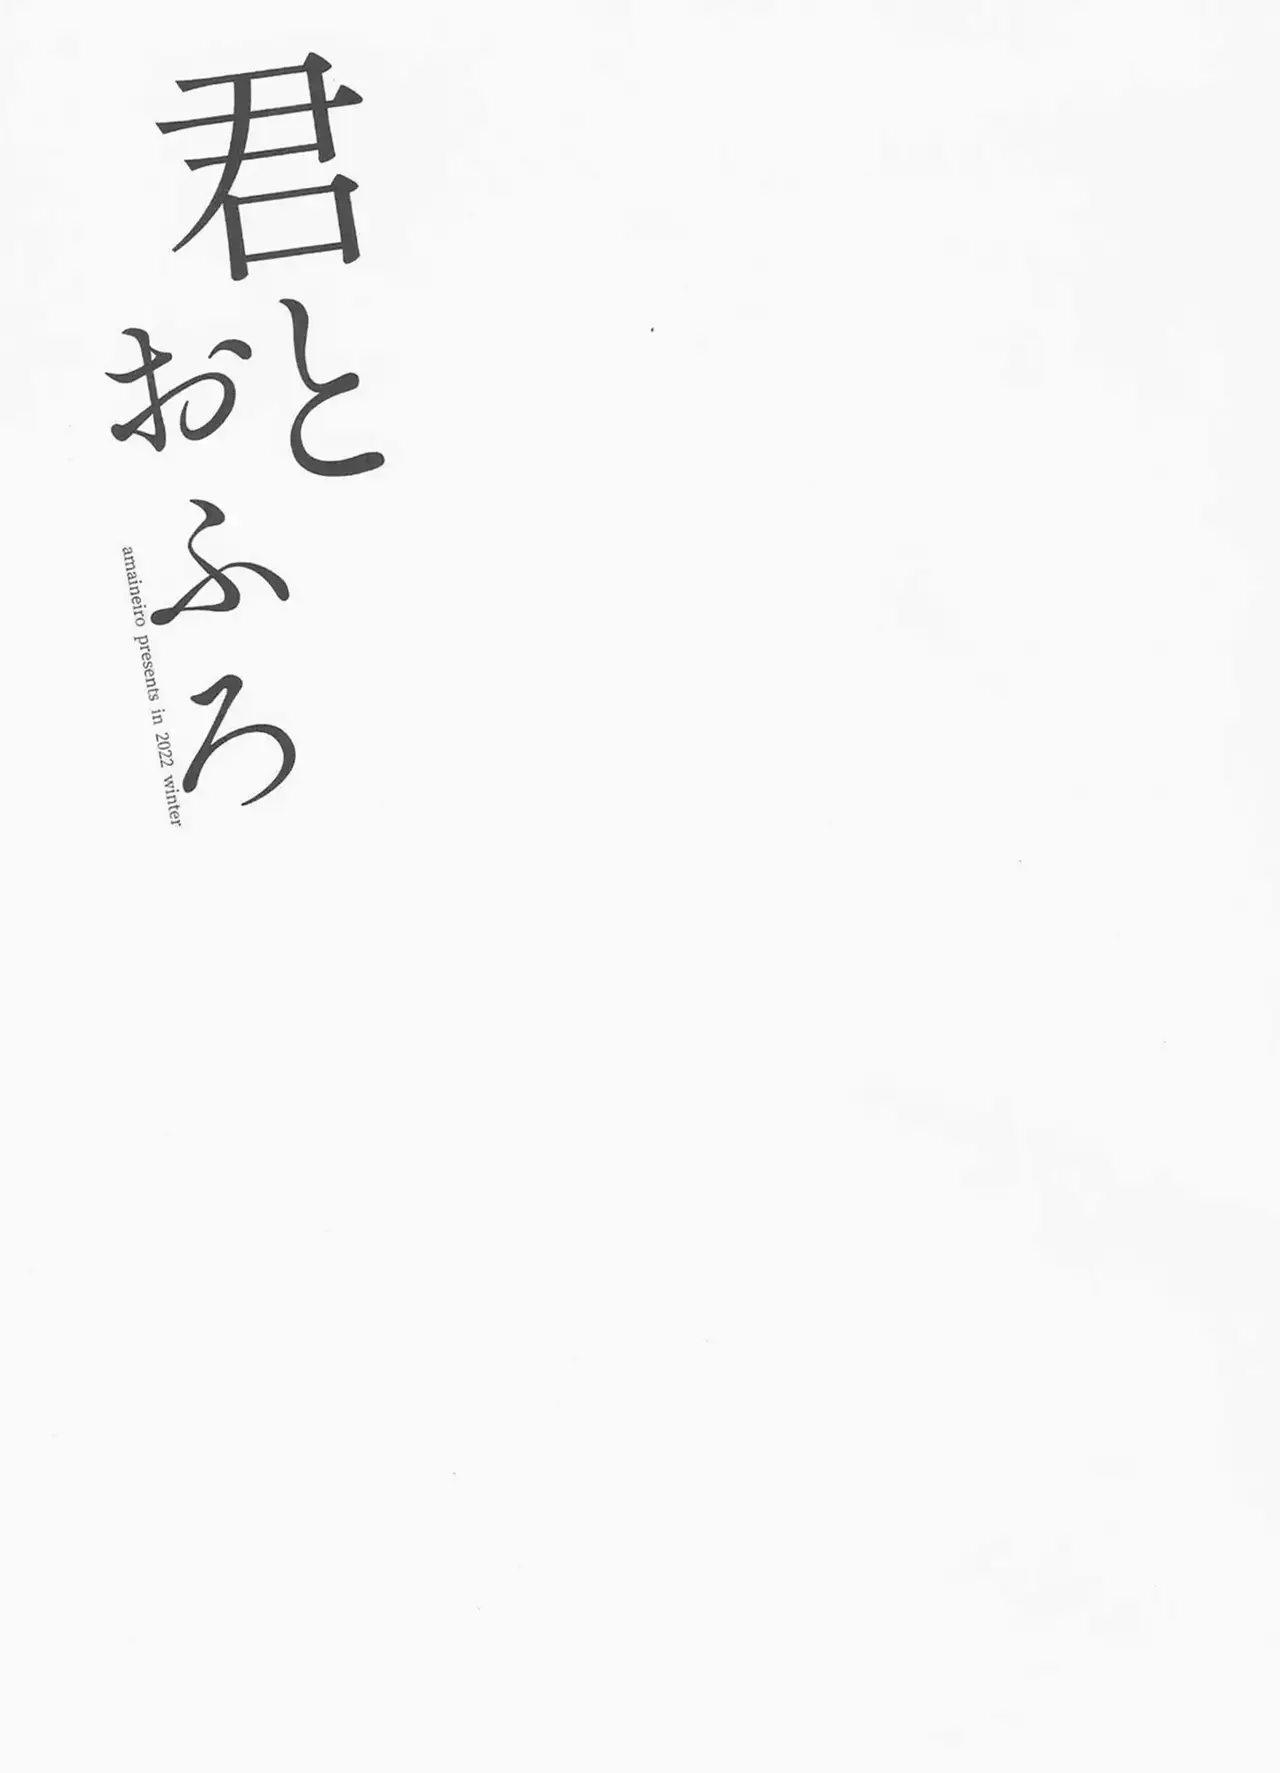 君と
おふろ
amaineiro presents in 2022 winter